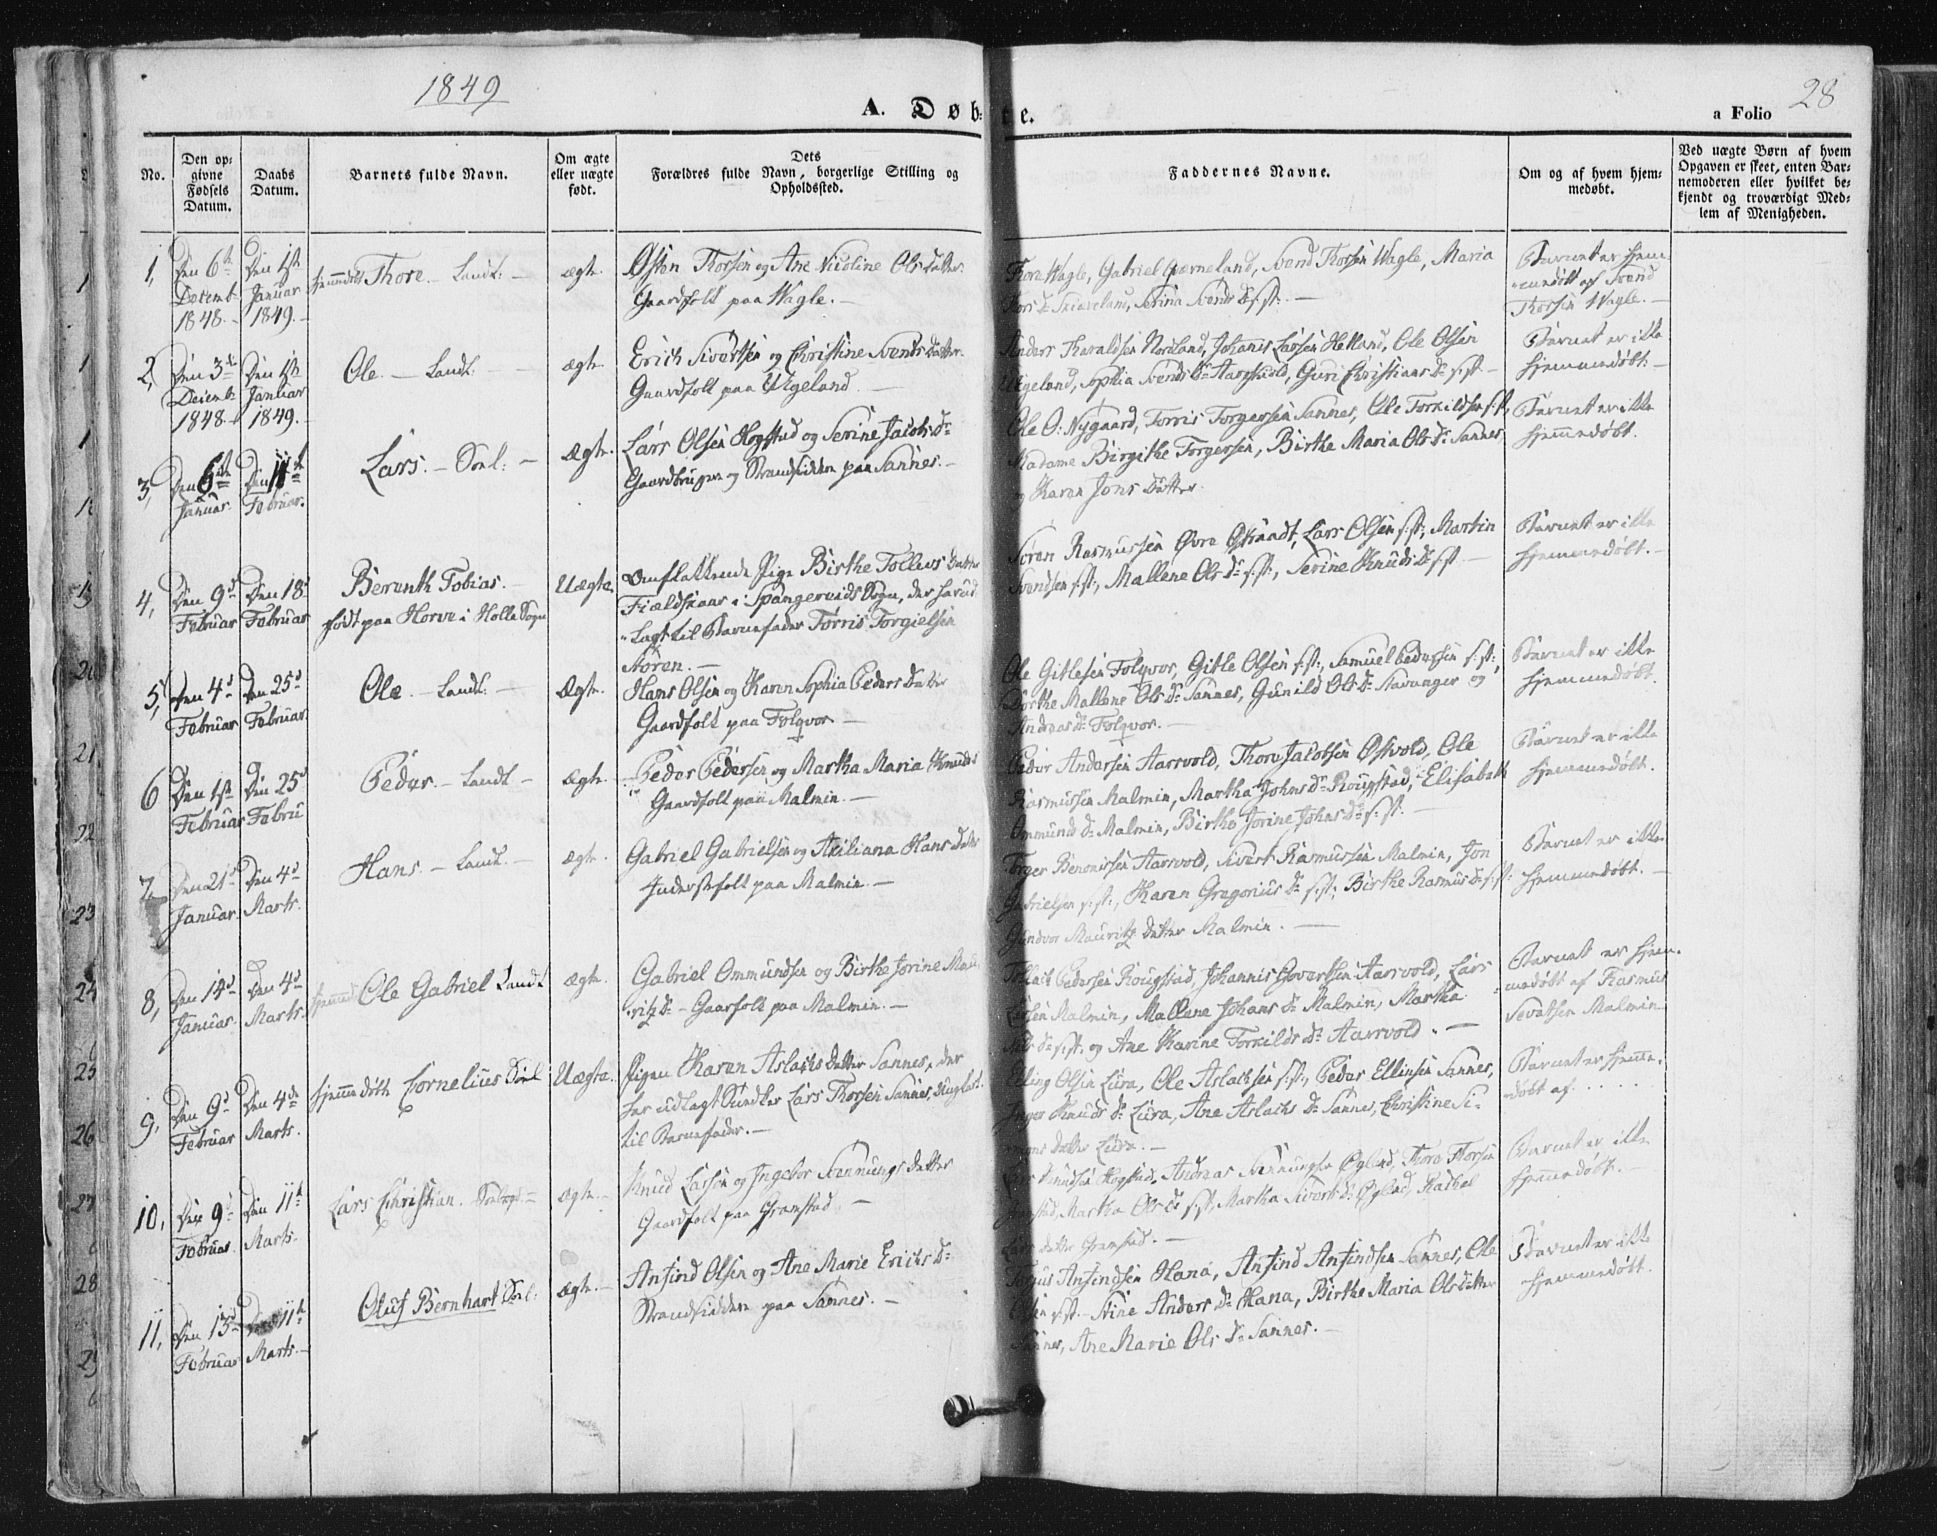 1849
28
A. Døb-te.
a Folio
No.
Den op-
givne
Fødsels
Datum.
Daabs
Datum.
Barnets fulde Navn.
Om ægte
eller uægte
født.
Dets
Forældres fulde Navn, borgerlige Stilling og
Opholdssted.
Faddernes Navne.
Om og af hvem hjem-
medøbt.
Ved uægte Børn af hvem
Opgaven er skeet, enten Bar-
nemoderen eller hvilket be-
kjendt og troværdigt Med-
lem af Menigheden.
1,
Den 6te
Decemb.
1848.
Den 1ste
Januar
1849.
Thore. Landt.
ægte.
Østen Thorsen og Ane Nicoline Olsdatter
Gaardfolk paa Wagle.
Thore Wagle, Gabriel Qværneland, Svend Thorsen Wagle, Maria
Serina Svends D. s: st:
Barnet er hjem-
medøbt af Svend
Thorsen Wagle.
2,
Den 3de
Decemb.
1848.
Den 1ste
Januar
1849.
Ole. Landt.
ægte.
Erich Sivertsen og Christine Svendsdatter
Gaardfolk paa Uigeland.
Anders Haraldsen Norland, Johanis Larsen Helland, Ole Olsen
Uigeland, Sophia Svends D. Guri Christians D. s: st:
Barnet er ikke
hjemmedøbt.
3,
Den 6te
Januar.
Den 11te
Februar.
Lars. Sønl:
Ægte.
Lars Olsen Hogstad og Serine Jacobs D.
Gaardbruger og Strandsidder paa Sannes.
Ole O: Nygaard, Torris Torgersen Sannes, Ole Torkildsen s: st:,
Madame Birgithe Torgersen, Birthe Maria Ols D. Sannes
og Karen Jons Datter.
Barnet er ikke
hjemmedøbt.
4,
Den 9de
Februar
Den 18de
Februar
Berenth Tobias.
født paa Horve i Holle Sogn
Uægte.
Omflakkende Pige Birthe Tollevs Datter
Fieldskaar i Spangereids Sogn, der har ud-
lagt til Barnefader Torris Torgielsen
Støren.
Søren Rasmussen Øvre Qvandt, Lars Olsen s: st:, Martin
Svendsen s: st:, Mallene Ols D. s: st:, Serine Knuds D. s: st:
Barnet er ikke
hjemmedøbt.
5,
Den 4de
Februar
Den 25de
Februar.
Ole. Landt.
Ægte.
Hans Olsen og Karen Sophia Peders Datter
Gaardfolk paa Folqvor.
Ole Gitlesen Folqvor, Gitle Olsen s: st:, Samuel Pedersen s: st:,
Birthe Mallene Ols D. Sannes, Gunild Ols D. Stavanger og
Andreas D. Folqvor.
Barnet er ikke
hjemmedøbt.
6
Den 1ste
Februar
Den 25de
Februar
Peder. Landt.
Ægte.
Peder Pedersen og Martha Maria Knuds
D. Gaardfolk paa Malmin.
Peder Andersen Aarsvold, Thore Jacobsen Osvold, Ole
Rasmussen Malmin, Martha Johns D. Rougstad, Elisabeth
Ommunds D. Malmin, Birthe Jorine Johns D. s: st:
Barnet er ikke
hjemmedøbt.
7,
Den 21de
Januar.
Den 4de
Marts.
Hans. Landt.
ægte.
Gabriel Gabrielsen og Hans Datter
Inderstfolk paa Malmin.
Torger Aarsvold, Sivert Rasmussen Malmin, Jon
Gabrielsen s: st:, Karen Gregorius D. s: st:, Birthe Rasmus D. s: st:
Gundvor Mauritz Datter Malmin.
Barnet er ikke
hjemmedøbt.
8,
Den 14de
Januar.
Den 4de
Marts.
Ole Gabriel Landt
ægte.
Gabriel Ommundsen og Birthe Jorine Mau-
ritz D. Gaarfolk paa Malmin.
Tollak Pedersen Rougstad, Johannis Govertsen Aarsvold, Lars
Larsen Malmin, Mallene Johans D. Malmin, Martha
Nils D. s: st: og Ane Karine Torkilds D. Aarsvold.
Barnet er hjem-
medøbt af Rasmus
Malmin
9,
Den 9de
Februar
Den 4de
Marts.
hjemmedøbt Cornelius Sønl
Uægte.
Pigen Karen Aslachs Datter Sannes, der
har udlagt Lars Thorsen Sannes,
til Barnefader.
Elling Olsen Lura, Ole Aslachsen s: st:, Peder Ellinsen Sannes,
Inger Knuds D. Lura, Ane Aslachs D. Sannes, Christine Si-
mons Datter Lura.
Barnet er hjemme-
døbt af . . . . .
10,
Den 9de
Februar.
Den 11te
Marts.
Lars Christian.
ægte.
Knud Larsen og Ingebor Svennungs Datter
Gaardfolk paa Gramstad.
Lars Knudsen Hogstad, Andreas Svennungsen Øglend, Thore Thorsen
Gramstad, Martha Ols D. s: st:, Martha Siverts D. Øglend, Rachel
Lars Datter Gramstad.
Barnet er ikke
hjemmedøbt.
11,
Den 13de
Februar
Den 11te
Marts.
Oluf Bernhart Sønl:
ægte.
Anfind Olsen og Ane Marie Erichs D.
Strandsiddere paa Sannes.
Torjus Anfindsen Hana, Anfind Anfindsen Sannes, Ole
Olsen s: st: Stine Anders D. Hana, Birthe Maria Olsdatter
Sannes, Ane Marie Ols D. Sannes.
Barnet er ikke
hjemmedøbt.